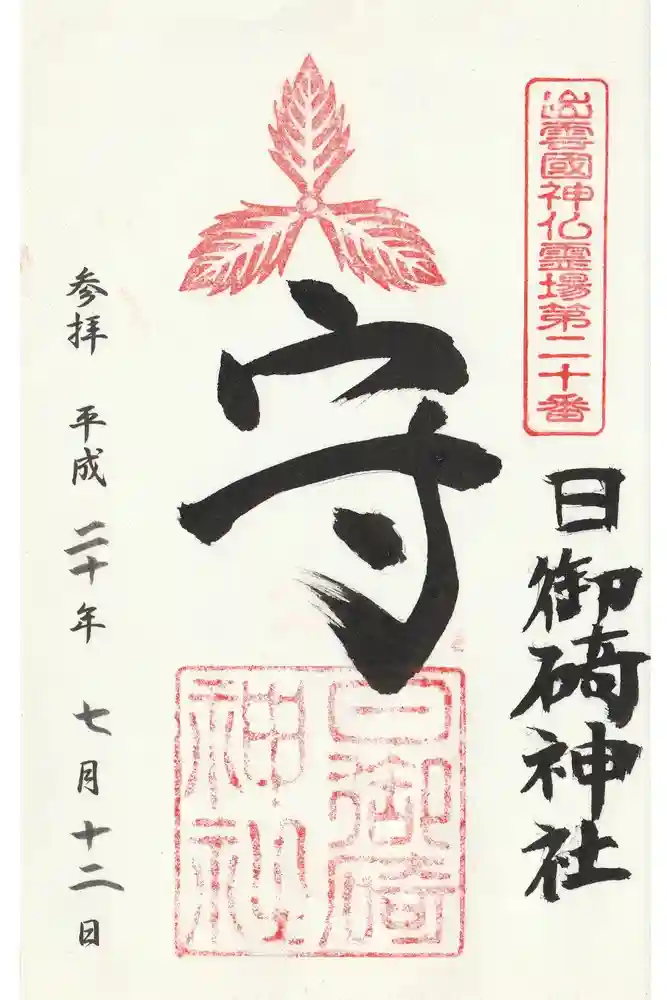 出雲國神仏霊場第二十番
日御碕神社
守
日御碕
神社
参拝 平成二十年 七月十二日